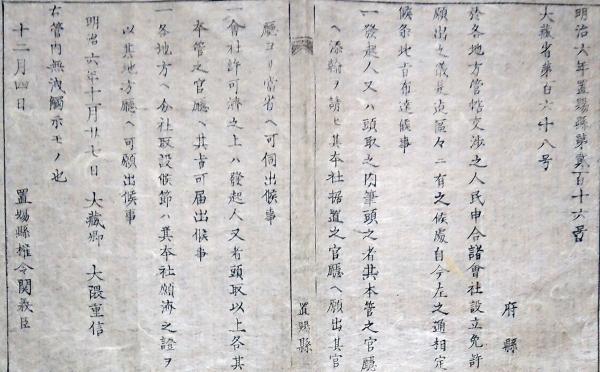 明治六年置賜縣第貳百十六号
大藏省第百六十八号
府縣
於各地方管轄交渉之人民申合諸會社設立免許
願出之儀是迠區々ニ有之候處自今左之通相定
候条此旨布達候事
一發起人又ハ頭取之内筆頭之者其本管之官廳
ヘ添翰ヲ請ヒ其本社据置之官廳ヘ願出其官
置賜縣
廳ヨリ當省ヘ可伺出候事
一會社許可濟之上ハ發起人又者頭取以上各其
本管之官廳ヘ其旨可届出候事
一各地方ヘ分社取設候節ハ其本社願濟之證ヲ
以其地方廳ヘ可願出候事
明治六年十一月廿七日 大藏卿 大隈重信
右管内無洩觸示モノ也
十二月四日 置賜縣権令関義臣